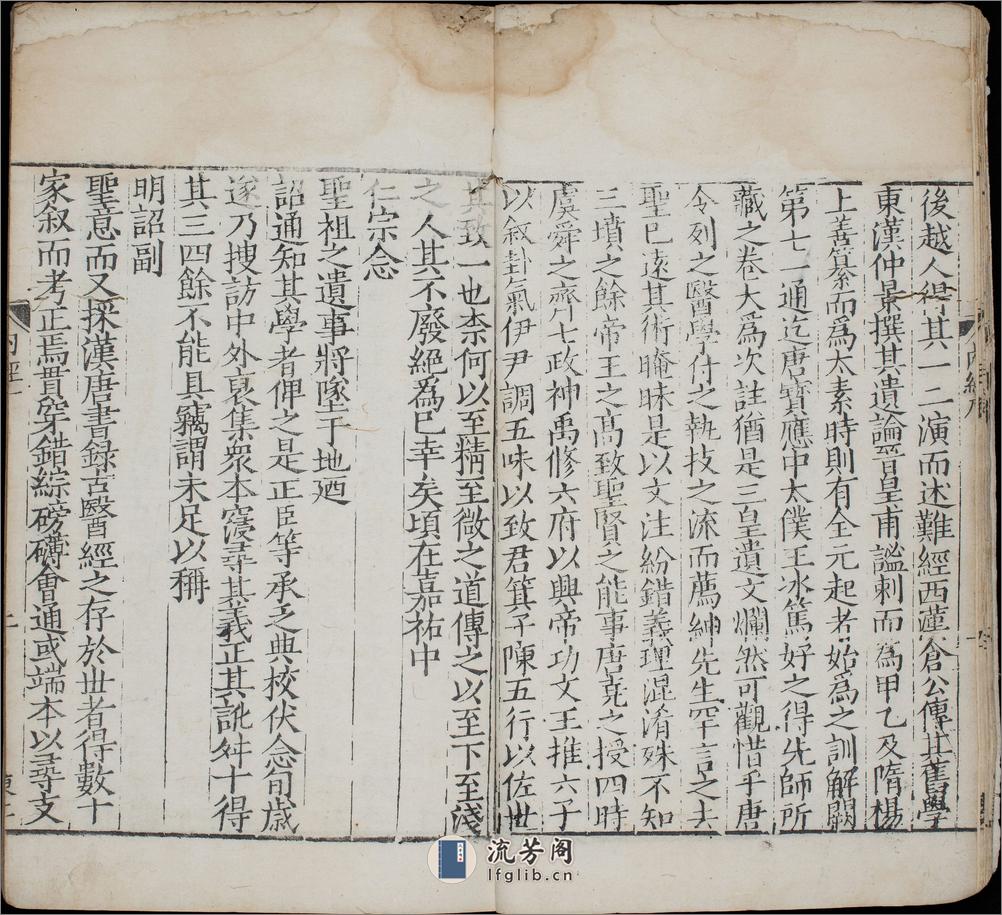 後越人得其一二演而述難經西漢倉公傳其舊學
東漢仲景撰其遺論晉皇甫謐刺而為甲乙及隋楊
上善纂而為太素時則有全元起者始為之訓解闕
第七一通迄唐寶應中太僕王冰篤好之得先師所
藏之卷大為次註猶是三皇遺文爛然可觀惜乎唐
令列之醫學付之執技之流而薦紳先生罕言之去
聖已遠其術晻昧是以文注紛錯義理混淆殊不知
三墳之餘帝王之高致聖賢之能事唐堯之授四時
虞舜之齊七政神禹修六府以興帝功文王推六子
以叙卦氣伊尹調五味以致君箕子陳五行以佐世
其致一也柰何以至精至微之道傳之以至下至淺
之人其不廢絕為已幸矣頃在嘉祐中
仁宗念
聖祖之遺事將墜于地廼
詔通知其學者俾之是正臣等承乏典校伏念旬歲
遂乃搜訪中外裒集衆本寖尋其義正其訛舛十得
其三四餘不能具竊謂未足以稱
明詔副
聖意而又採漢唐書録古醫經之存於世者得數十
家叙而考正焉貫穿錯綜磅礴會通或端本以尋支
流芳阁
lfglib.cn